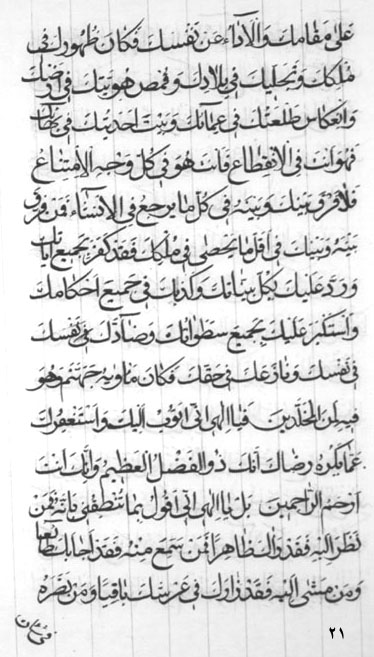 على مقامك والاداء عن نفسك فكان ظهورك فى
ملكك وتجليك فى بلادك وقمص هويتك فى ارضك
وانعكاس طلعتك فى عمائك وبيت احديتك فى
فهو انت فى الانقطاع فانت هو فى كل وجه الامتناع
فلا فرق بينك وبينه فى كل ما يرجع فى الانشاء فمن فرق
بينه وبينك فى اقل ما يحصى فى ملكك فقد كفر بجميع اياتك
ورد عليك بكل بيناتك وكذبك فى جميع احكامك
واستكبر عليك بجميع سطواتك وضادك فى نفسك
فى نفسك ونازعك فى حقك فكان ماويه جهنم هو
فيه لمن الخلدين فيا الهى انى اتوب اليك واستغفرك
عما يكره رضاك انك ذو الفضل العظيم وانك انت
ارحم الراحمين بل يا الهى انى اقول بما تنطقنى بانه فمن
نظر اليه فقد والله ظاهرا فمن سمع منه فقد اجابك طالعا
ومن مشى اليه فقد زارك فى عرشك باقيا ومن نصره
٢١